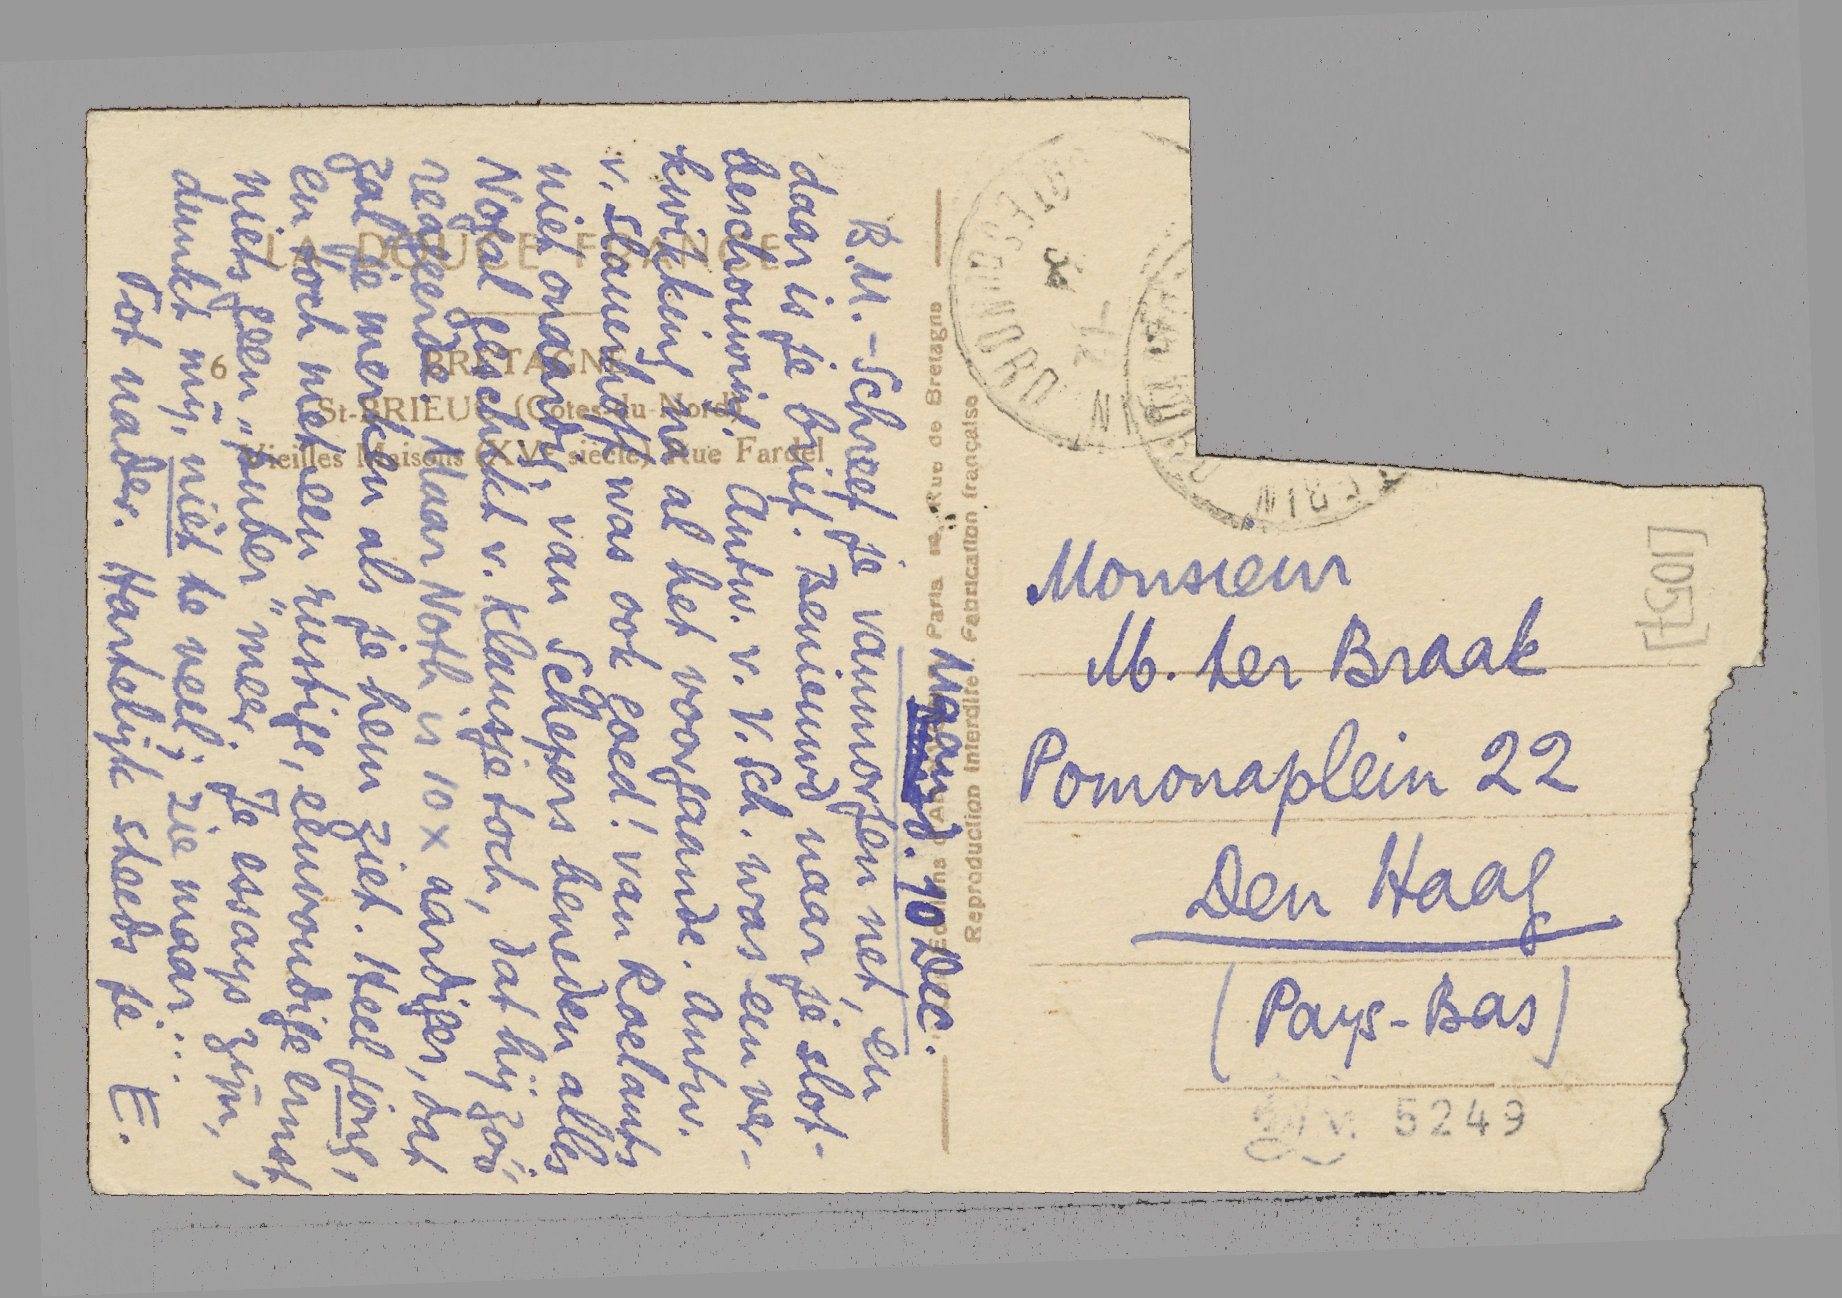 Maand. 10 Dec.
B.M. - Schreef je vanmorgen net, en
daar is je brief. Benieuwd naar je slot-
beschouwing. Antw. v. V. Sch. was een ver-
kwikking na al het voorgaande. Antw.
v. Slauerhoff was ook goed! van Roelants
niet onaardig, van Schepers beneden alles
Nogal geschikt v. Klausje toch, dat hij zoo
reageerde. Maar Noth is 10 x aardiger, dat
zal je merken als je hem ziet. Heel jong,
en toch met een rustige, eenvoudige ernst,
niets geen "puber" meer. Je essays zijn,
dunkt mij, niet te veel; zie maar...
Tot nader. Hartelijk steeds je E.
LA DOUCE FRANCE
6 BRETAGNE
St-BRIEUC (Côtes-du-Nord)
Vieilles Maisons (XVe siècle) Rue Fardel
Paris Rue de Bretagne
Reproduction interdite. Fabrication française
Monsieur
M. ter Braak
Pomonaplein 22
Den Haag
(Pays-Bas)
[1057]
5249